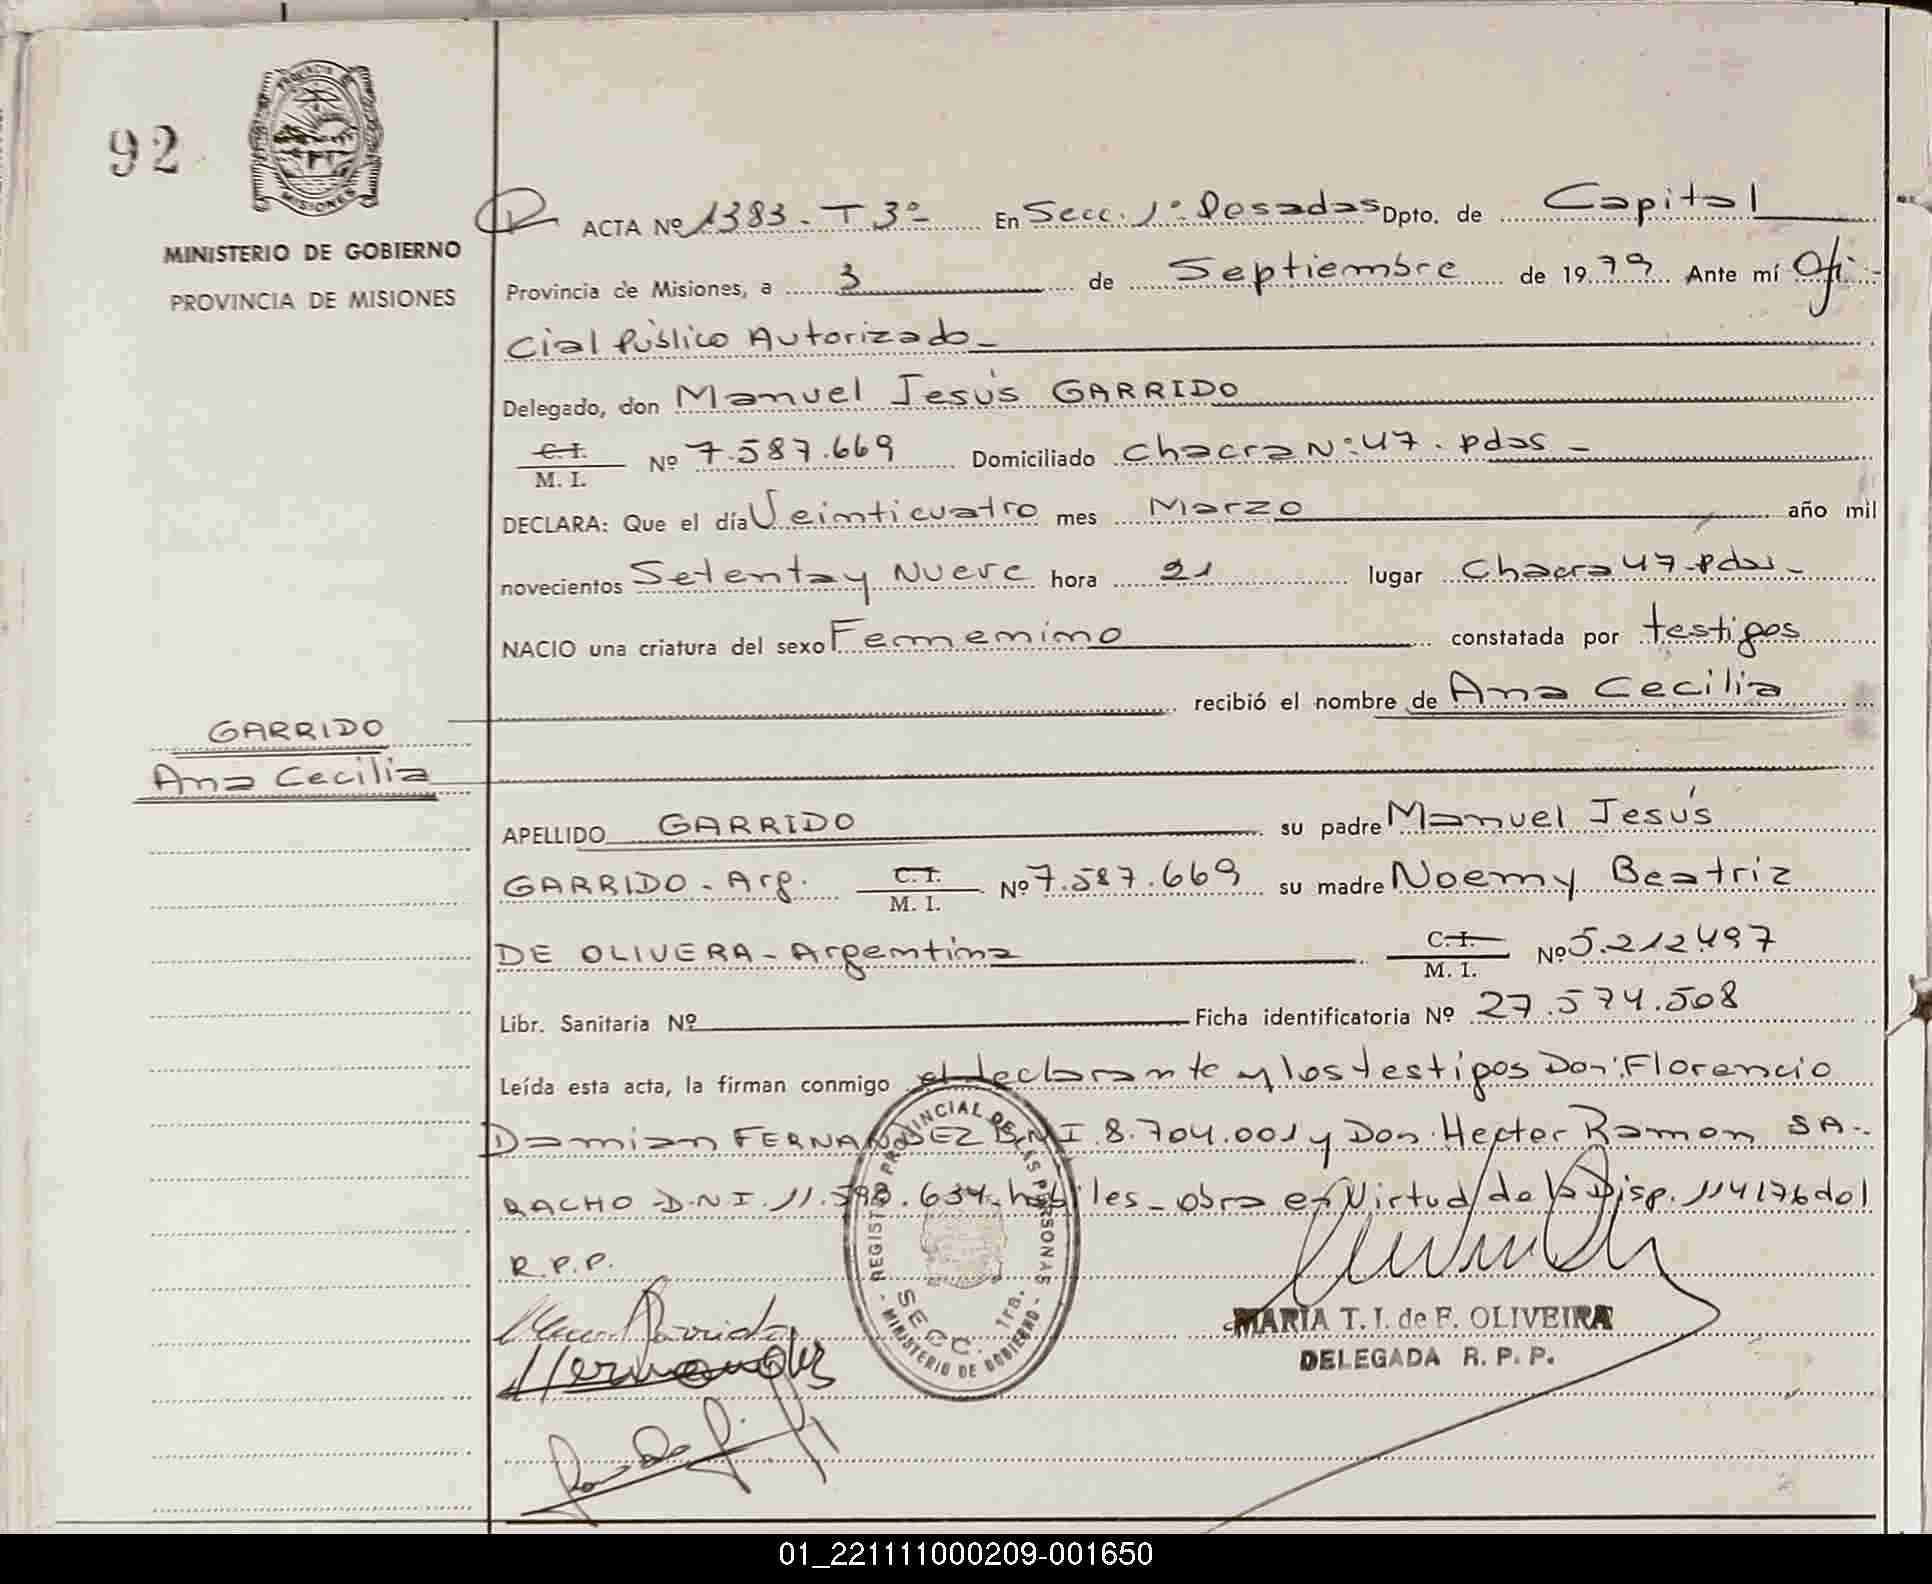 92
PROVINCIA DE
MISIONES
MINISTERIO DE GOBIERNO
PROVINCIA DE MISIONES
ACTA Nº 1383 - T 3º - En Secc. 1º Posadas Dpto. de Capital
Provincia de Misiones, a 3 de Septiembre de 1979 Ante mí Ofi-
cial Público Autorizado -
Delegado, don Manuel Jesús GARRIDO
C.I.
M. I. Nº 7.587.669 Domiciliado Chacra N: 47. pdas -
DECLARA: Que el día Veinticuatro mes Marzo año mil
novecientos Setenta y Nueve hora 21 lugar Chacra 47. Pdas -
NACIO una criatura del sexo Femenino constatada por testigos
recibió el nombre de Ana Cecilia
GARRIDO
Ana Cecilia
APELLIDO GARRIDO su padre Manuel Jesús
GARRIDO - Arg. C.I. M. I. Nº 7.587.669 su madre Noemy Beatriz
DE OLIVERA - Argentina C.I. M. I. Nº 5.212.497
Libr. Sanitaria Nº Ficha identificatoria Nº 27.574.508
Leída esta acta, la firman conmigo el declarante y los testigos Don: Florencio
Damian FERNANDEZ D.N.I. 8.704.001 y Don. Hector Ramon SA-
RACHO D.N.I. 11.598.634. habiles - obra en Virtud de la Disp. 114176 del
R.P.P.
REGISTRO PROVINCIAL DE LAS PERSONAS
SECC. 1ra.
- MINISTERIO DE GOBIERNO -
MARIA T. I. de F. OLIVEIRA
DELEGADA R. P. P.
01_221111000209-001650